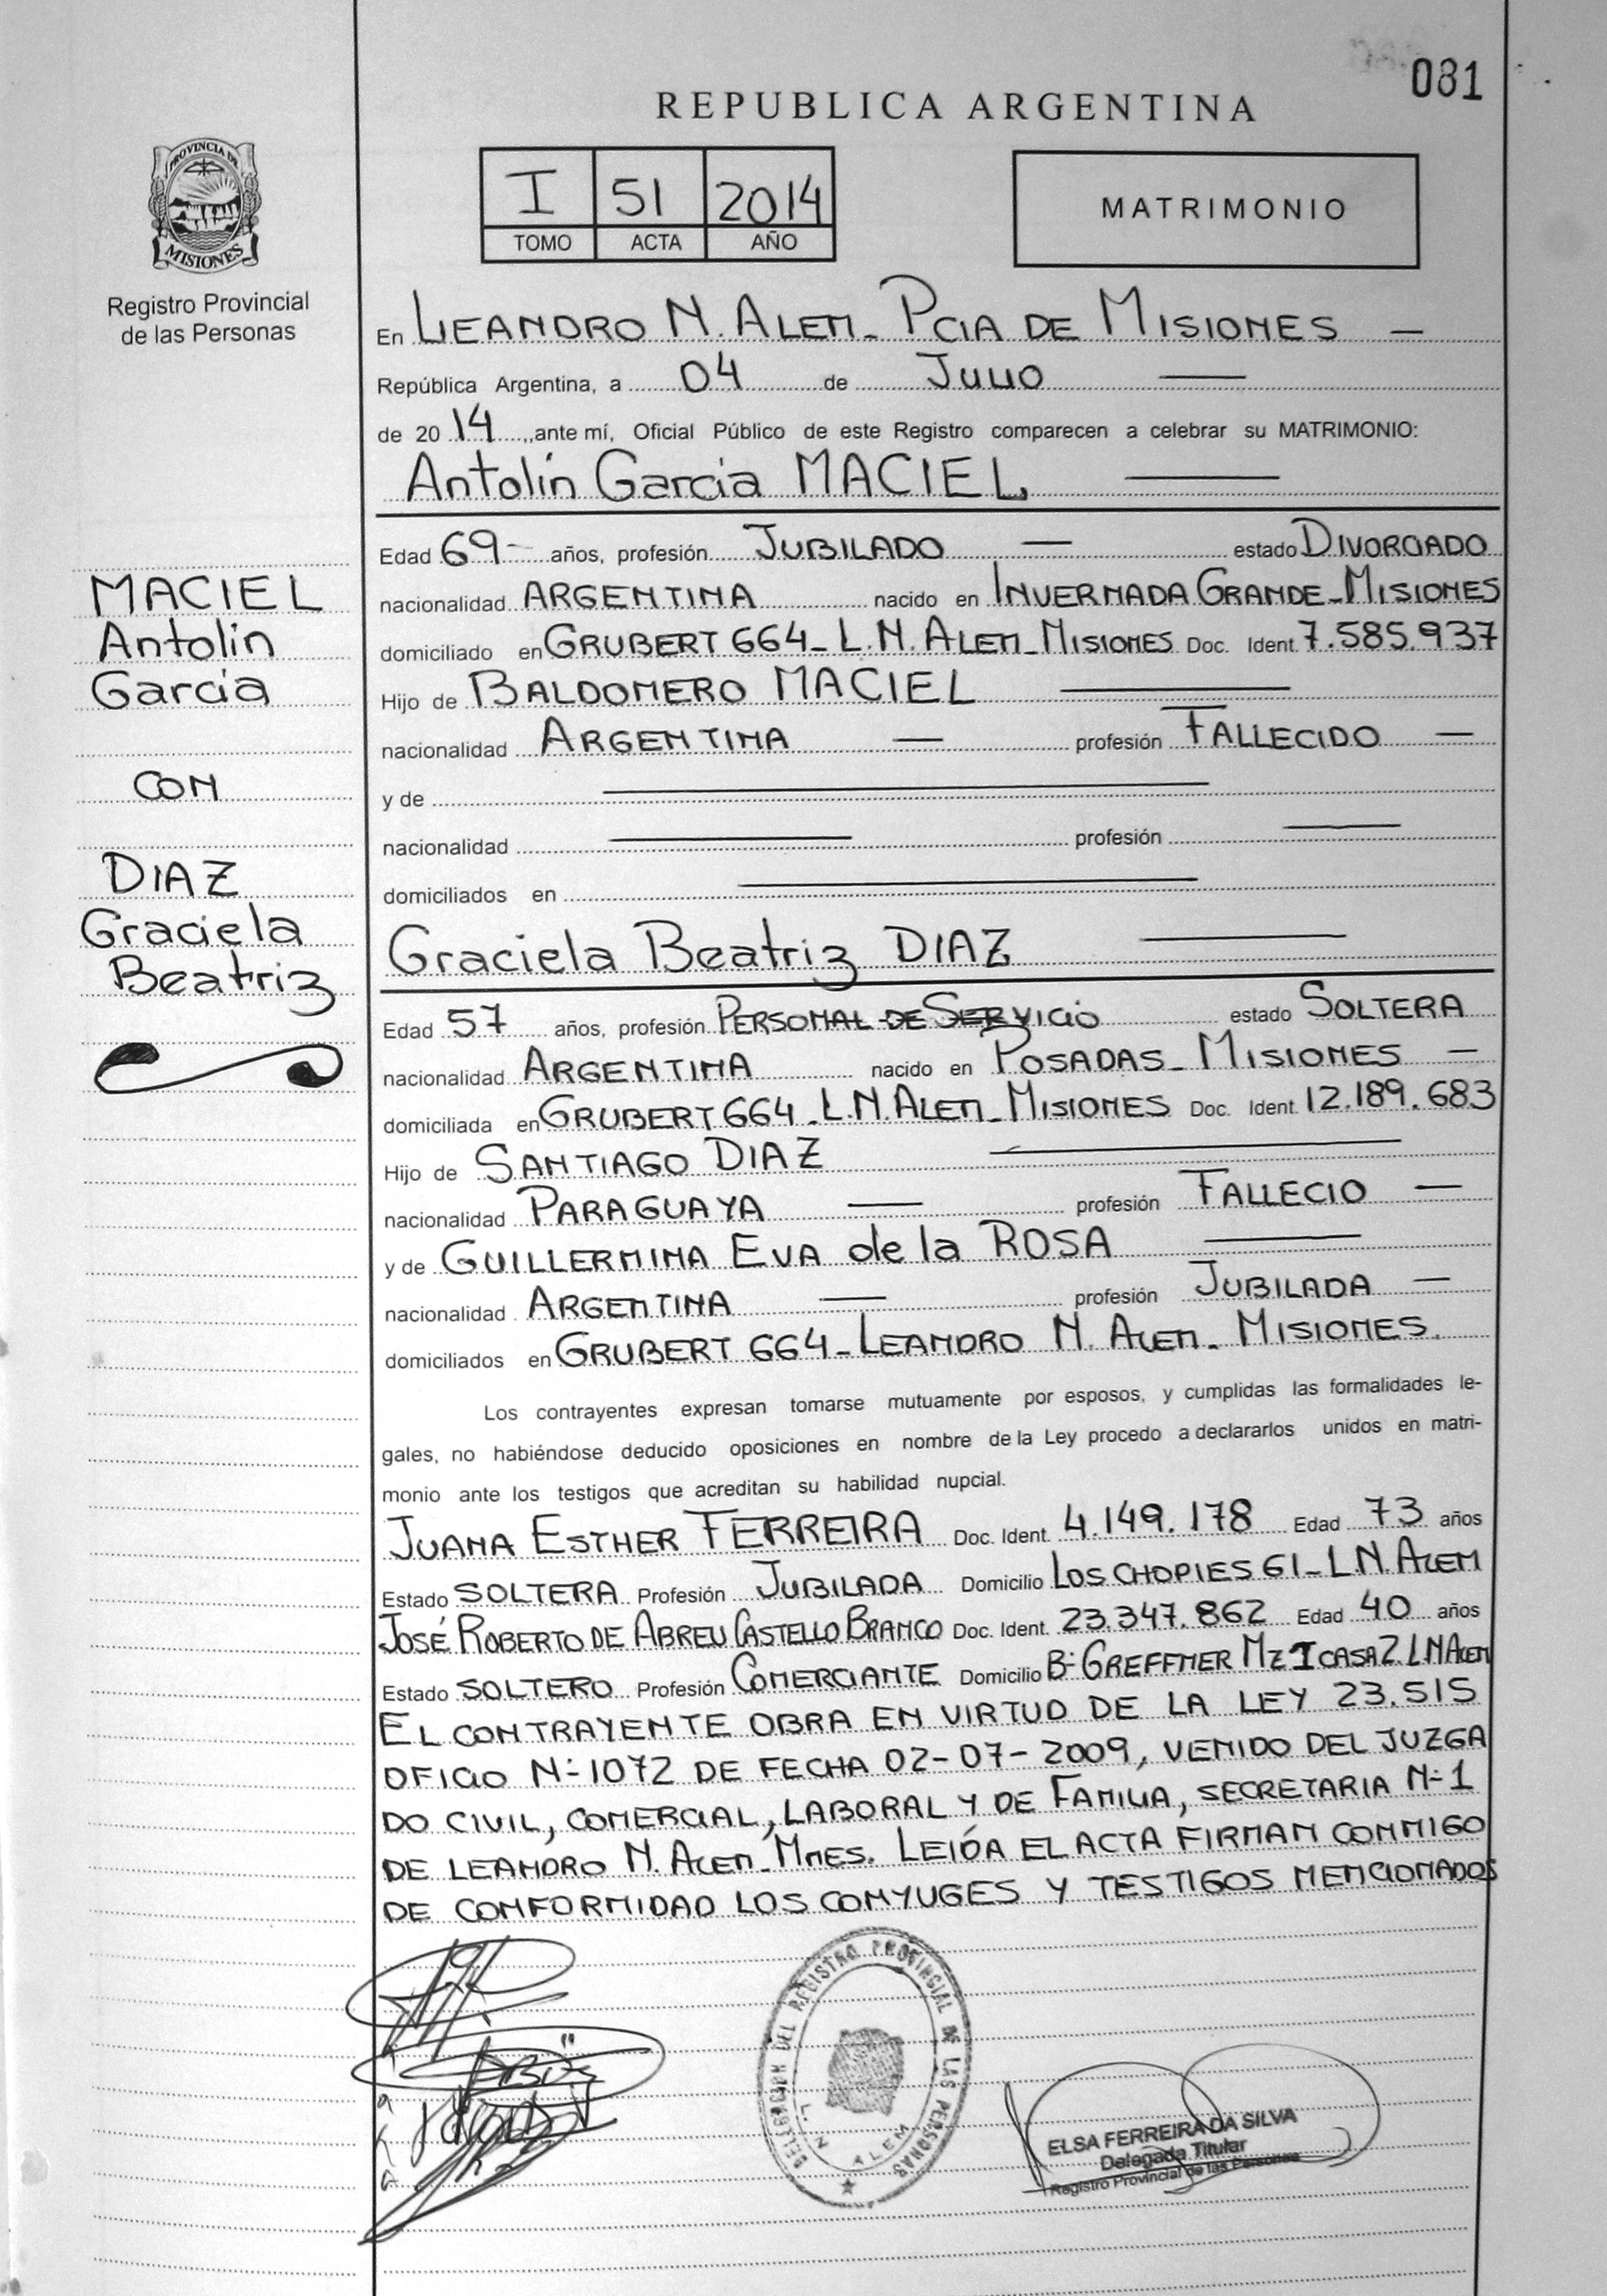 081
REPUBLICA ARGENTINA
PROVINCIA DE
MISIONES
Registro Provincial
de las Personas
I 51 2014
TOMO ACTA AÑO
MATRIMONIO
En LEANDRO N. ALEM - PCIA DE MISIONES —
República Argentina, a 04 de JULIO —
de 2014, ante mí, Oficial Público de este Registro comparecen a celebrar su MATRIMONIO:
Antolín García MACIEL —
Edad 69- años, profesión JUBILADO — estado DIVORCIADO
nacionalidad ARGENTINA nacido en INVERNADA GRANDE - MISIONES
domiciliado en GRUBERT 664 - L.N. ALEM - MISIONES Doc. Ident. 7.585.937
Hijo de BALDOMERO MACIEL —
nacionalidad ARGENTINA — profesión FALLECIDO —
y de —
nacionalidad — profesión —
domiciliados en —
MACIEL
Antolín
García
CON
DIAZ
Graciela
Beatriz
Graciela Beatriz DIAZ —
Edad 57 años, profesión PERSONAL DE SERVICIO estado SOLTERA
nacionalidad ARGENTINA nacido en POSADAS - MISIONES —
domiciliada en GRUBERT 664 - L.N. ALEM - MISIONES Doc. Ident. 12.189.683
Hijo de SANTIAGO DIAZ —
nacionalidad PARAGUAYA — profesión FALLECIO —
y de GUILLERMINA EVA de la ROSA —
nacionalidad ARGENTINA — profesión JUBILADA —
domiciliados en GRUBERT 664 - LEANDRO N. ALEM - MISIONES.
Los contrayentes expresan tomarse mutuamente por esposos, y cumplidas las formalidades le-
gales, no habiéndose deducido oposiciones en nombre de la Ley procedo a declararlos unidos en matri-
monio ante los testigos que acreditan su habilidad nupcial.
JUANA ESTHER FERREIRA Doc. Ident. 4.149.178 Edad 73 años
Estado SOLTERA Profesión JUBILADA Domicilio LOS CHOPIES 61 - L.N. ALEM
JOSÉ ROBERTO DE ABREU CASTELLO BRANCO Doc. Ident. 23.347.862 Edad 40 años
Estado SOLTERO Profesión COMERCIANTE Domicilio B° GREFFNER MZ I CASA 2 L N ALEM
EL CONTRAYENTE OBRA EN VIRTUD DE LA LEY 23.515
OFICIO N° 1072 DE FECHA 02-07-2009, VENIDO DEL JUZGA
DO CIVIL, COMERCIAL, LABORAL Y DE FAMILIA, SECRETARIA N° 1
DE LEANDRO N. ALEM - MNES. LEIDA EL ACTA FIRMAN CONMIGO
DE CONFORMIDAD LOS CONYUGES Y TESTIGOS MENCIONADOS
DELEGACION DEL REGISTRO PROVINCIAL DE LAS PERSONAS
L. N. ALEM
ELSA FERREIRA DA SILVA
Delegada Titular
Registro Provincial de las Personas